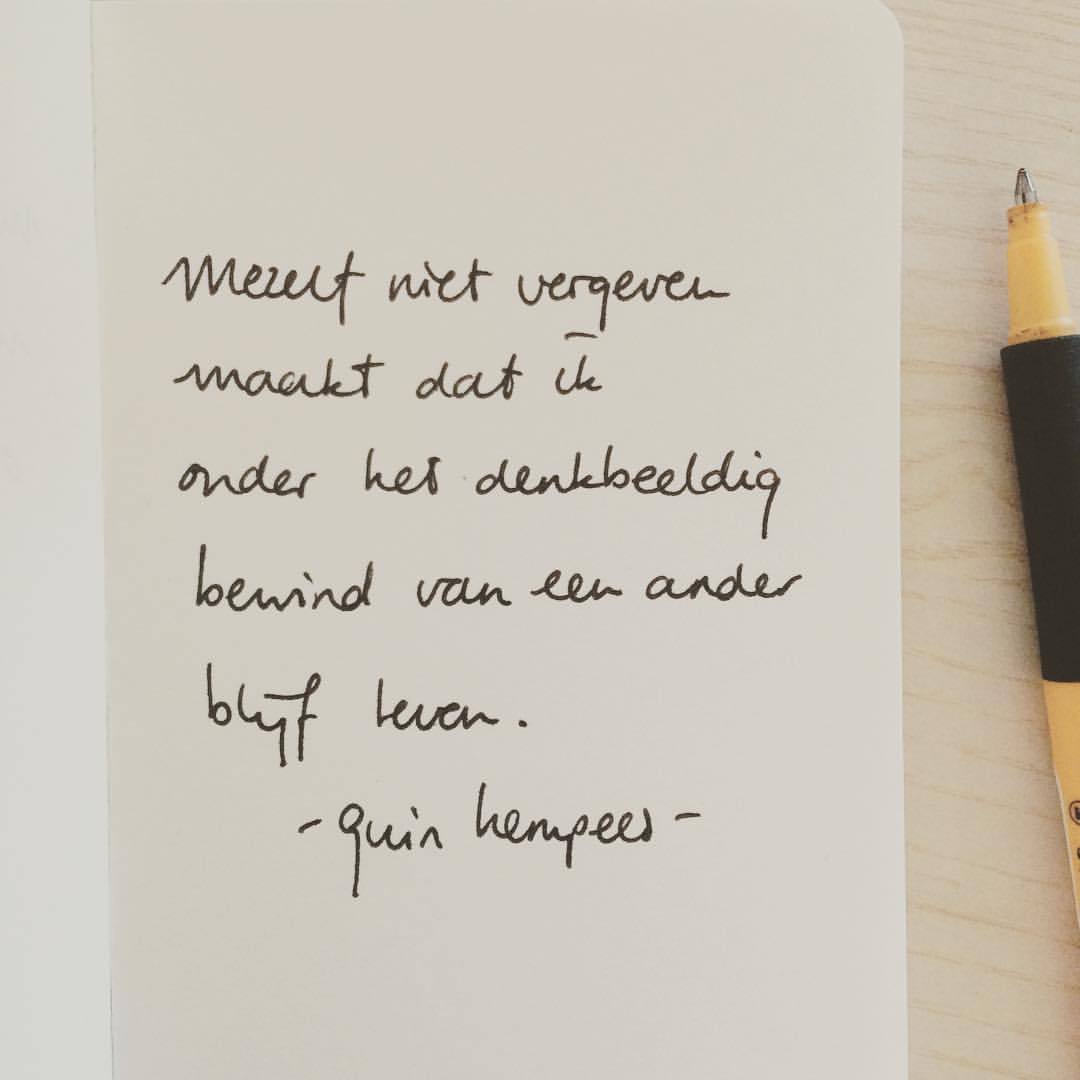 Mezelf niet vergeven
maakt dat ik
onder het denkbeeldig
bewind van een ander
blijf leven.
- quin kempees -